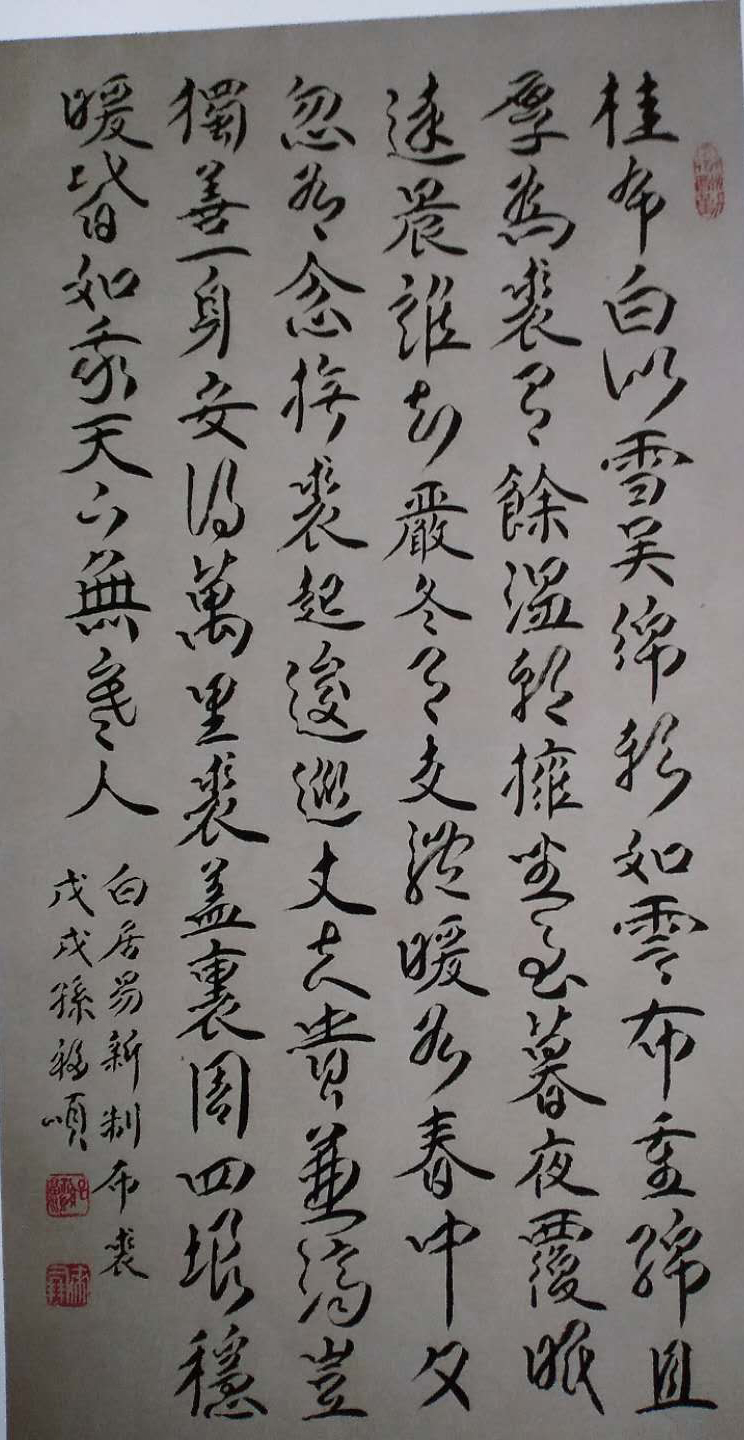 桂布白似雪吳綿軟如雲布重綿且
厚為裘有餘溫朝擁坐至暮夜覆眠
達晨誰知嚴冬月支體暖如春中夕
忽有念撫裘起逡巡丈夫貴兼濟豈
獨善一身安得萬里裘蓋裹周四垠穩
暖皆如我天下無寒人
白居易新制布裘
戊戌孫